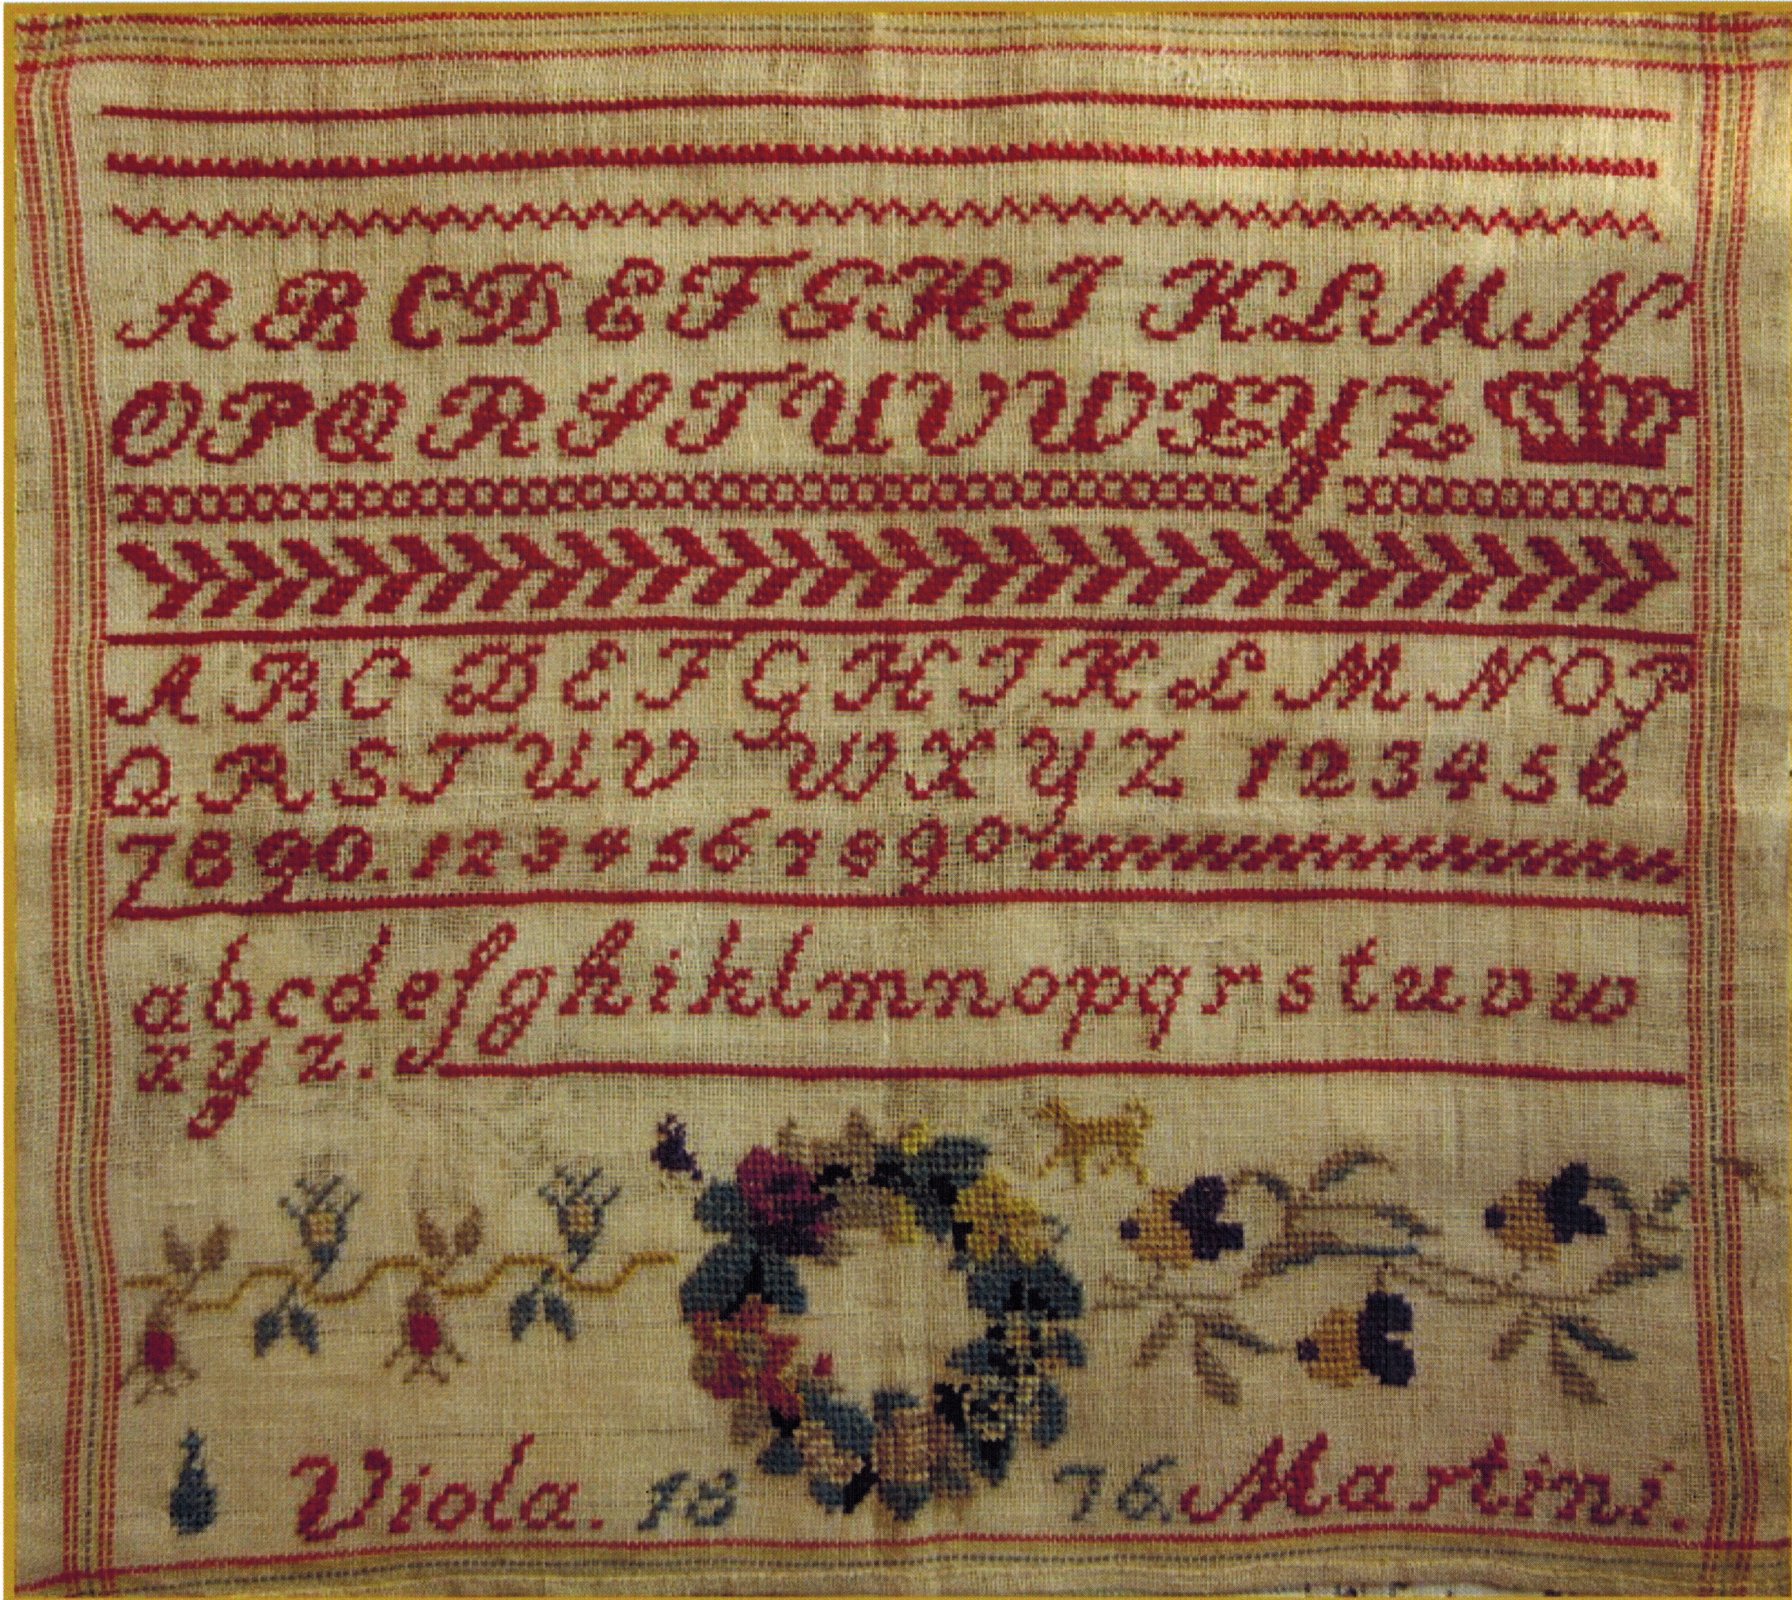 A B C D E F G H I K L M N
O P Q R S T U V W X Y Z
A B C D E F G H I K L M N O P
Q R S T U V W X Y Z 1 2 3 4 5 6
7 8 9 0. 1 2 3 4 5 6 7 8 9 0
a b c d e f g h i k l m n o p q r s t u v w
x y z.
Viola. 18 76. Martini.